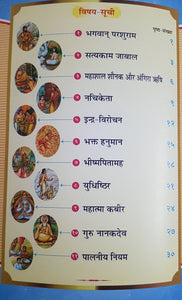 विषय-सूची
पृष्ठ-संख्या
१ भगवान् परशुराम १
२ सत्यकाम जाबाल ३
३ महाशाल शौनक और अंगिरा ऋषि ५
४ नचिकेता ७
५ इन्द्र-विरोचन १२
६ भक्त हनुमान १५
७ भीष्मपितामह १८
८ युधिष्ठिर २१
९ महात्मा कबीर २४
१० गुरु नानकदेव २७
११ पालनीय नियम ३०